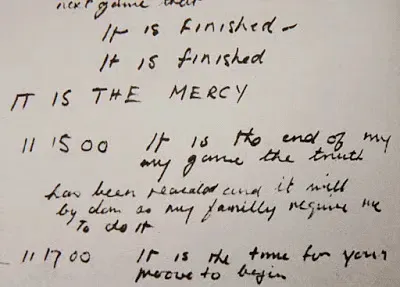 next game that
It is finished -
It is finished
IT IS THE MERCY
11 15 00 It is the end of my
my game the truth
has been revealed and it will
by don as my familly require me
To do it
11 17 00 It is the time for your
moove to begin